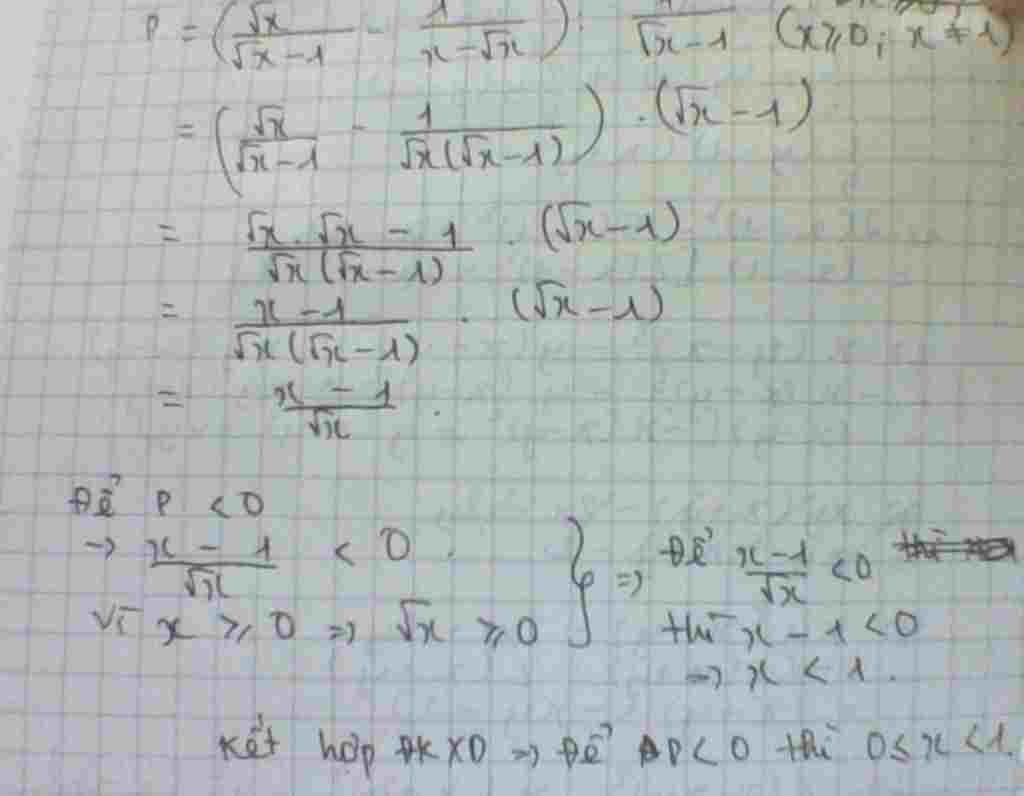 P = (√x/(√x-1) - 1/(x-√x)) : 1/(√x-1) (x≥0; x≠1)
= (√x/(√x-1) - 1/(√x(√x-1))) . (√x-1)
= (√x.√x - 1)/(√x(√x-1)) . (√x-1)
= (x-1)/(√x(√x-1)) . (√x-1)
= (x-1)/√x .
Để P < 0
→ (x-1)/√x < 0 . } => Để (x-1)/√x < 0
Vì x ≥ 0 => √x ≥ 0 thì x - 1 < 0
=> x < 1 .
Kết hợp ĐKXĐ => Để P < 0 thì 0 ≤ x < 1.